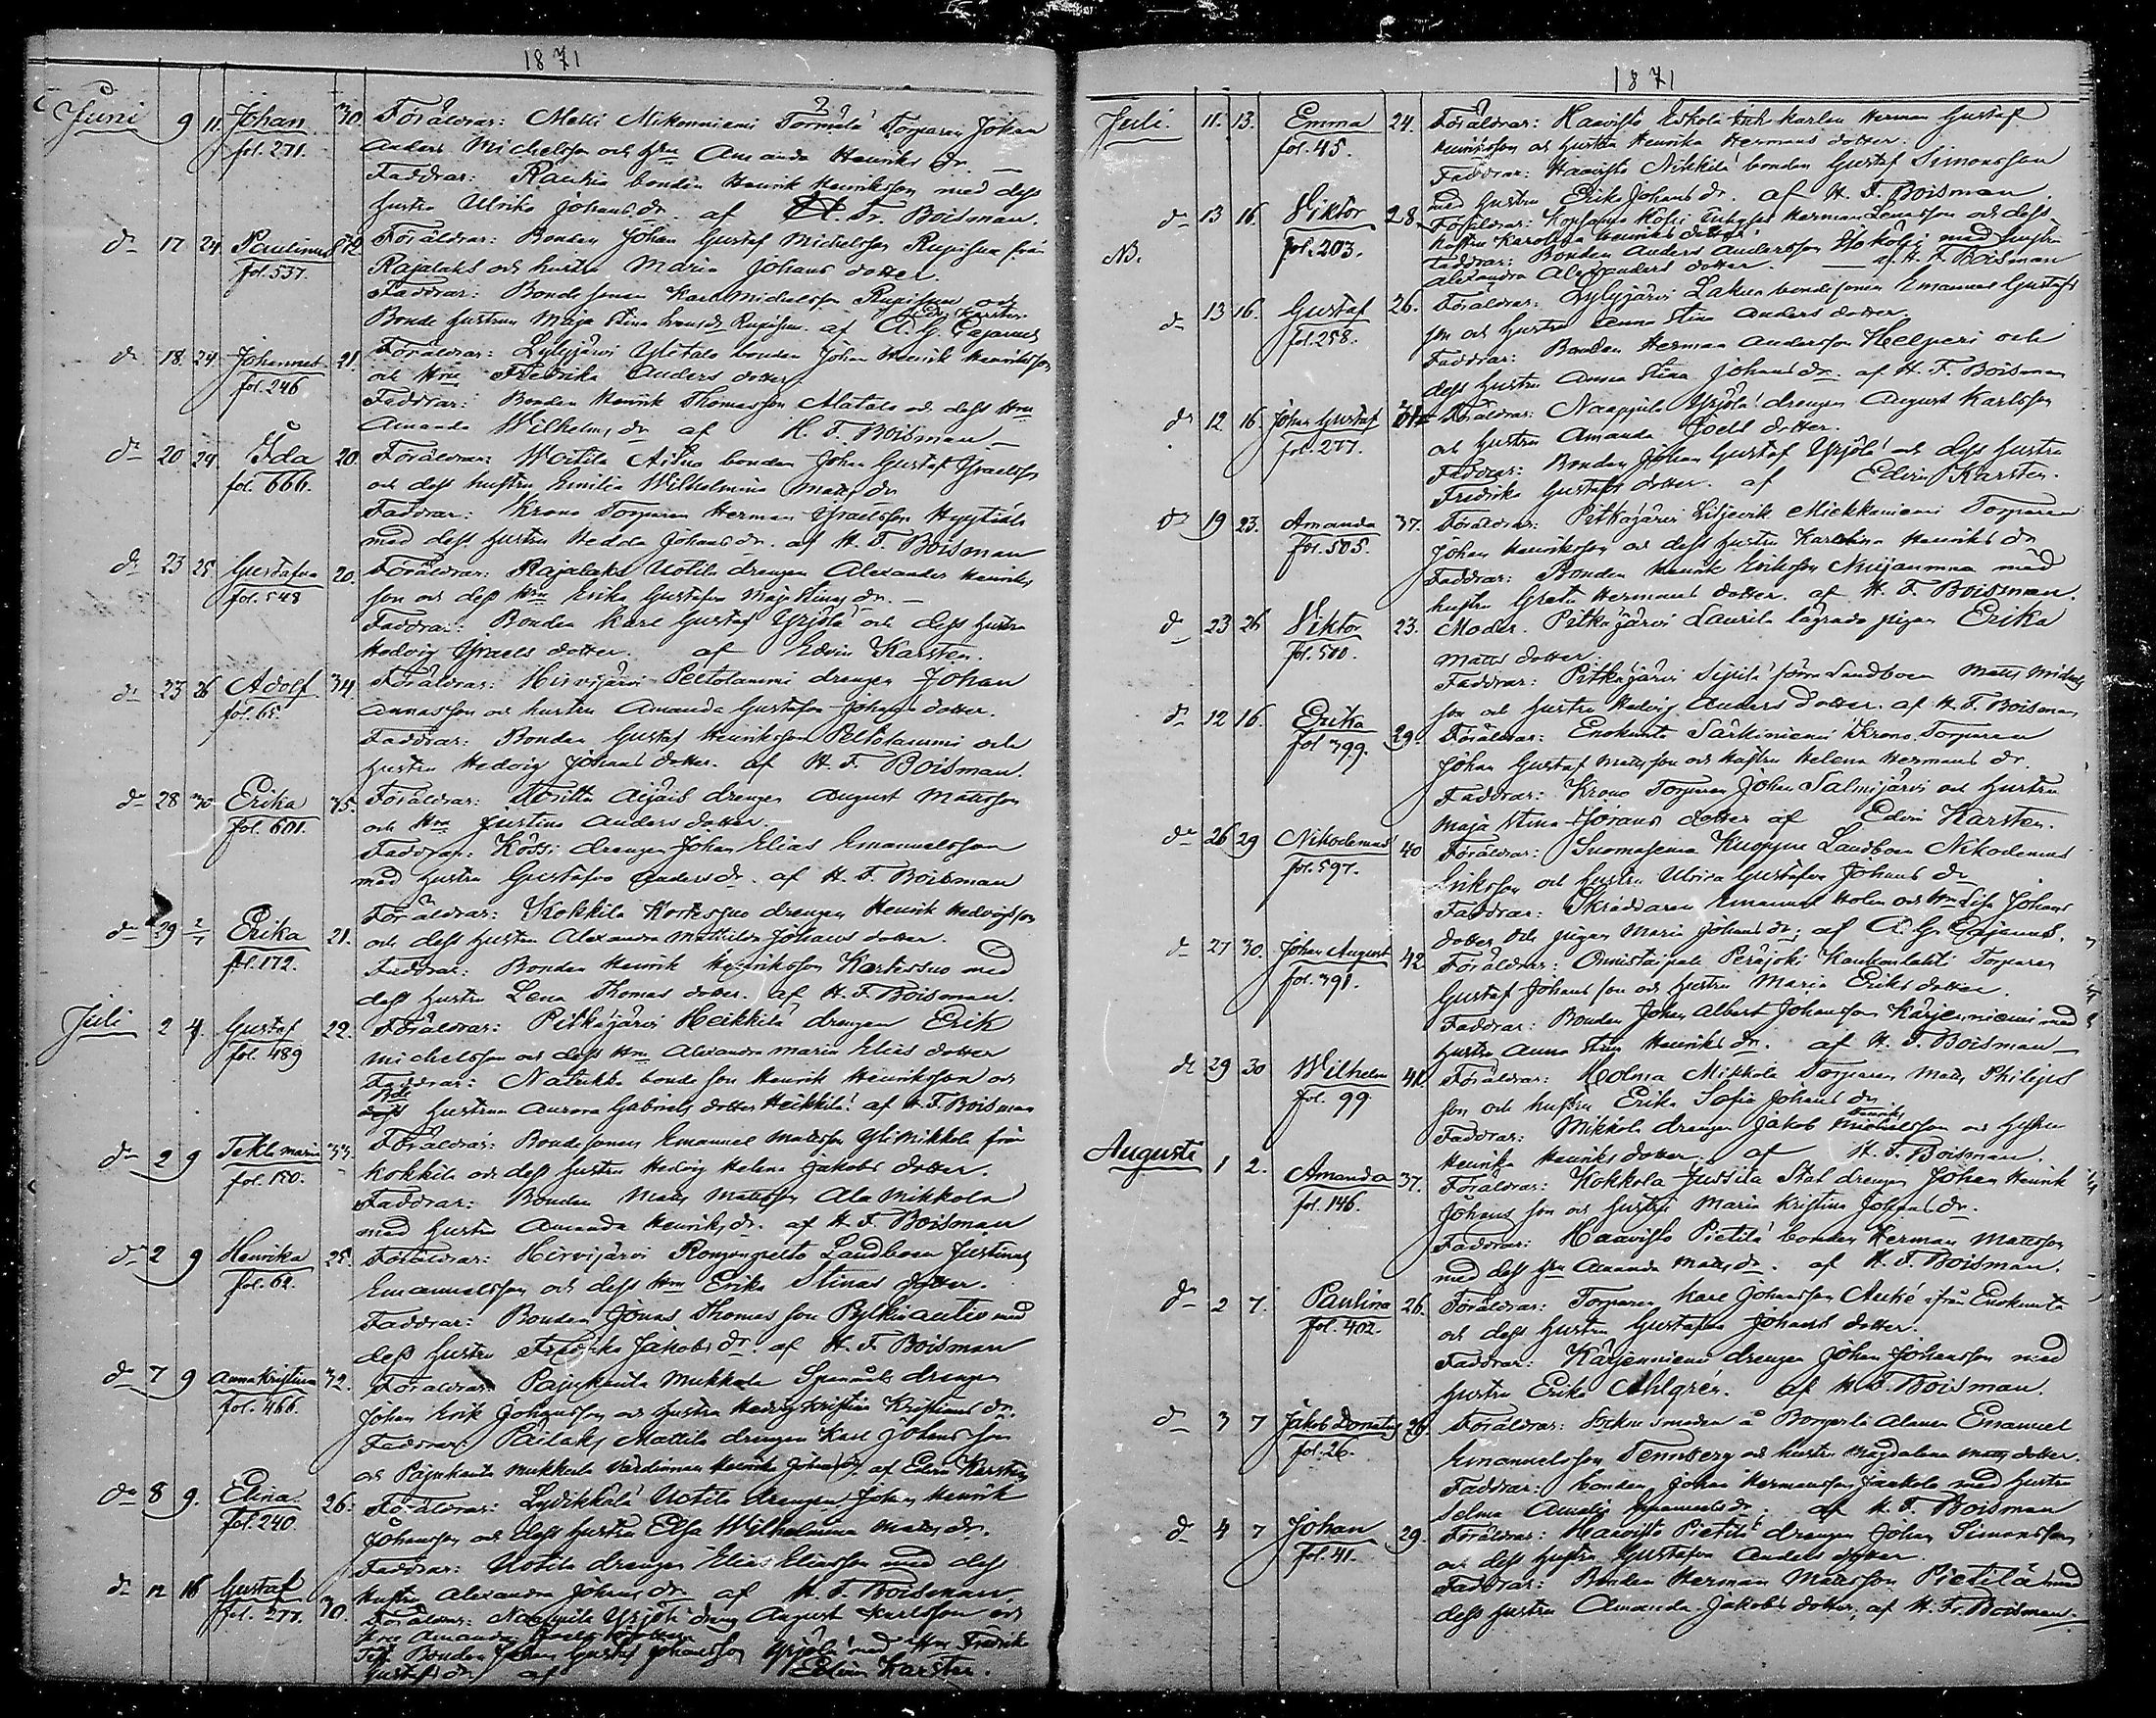 1871
Juni 9 11. Johan 30. Föräldrar: Matti Mikonniemi Törmälä Torparen Johan
fol. 271. Anders Michelsson och Hru Amanda Henriks dr.
Faddrar: Rankia bonden Henrik Henriksson med dess
hustru Ulrika Johans dr. af H. Fr. Boisman.
do 17 24. Paulina Föräldrar: Bonden Johan Gustaf Michelsson från
fol. 537. Rajalaks och hustru Maria Johans dotter.
Faddrar: Bonde sonen Karl Michelsson och
Bonde hustrun Maja Stina af A. G. Cajanus
do 18. 24. Johannes 21. Föräldrar: Lylyjärvi Ylitalo bonden Johan Henrik Henriksson
fol. 246 och Hru Fredrika Anders dotter
Faddrar: Bonden Henrik Thomasson Alatalo och dess Hru
Amanda Wilhelms dr af H. F. Boisman
do 20 24. Ida 20. Föräldrar: bonden Johan Gustaf Israelsson
fol. 666. och dess hustru Emilia Wilhelmina Matts dr
Faddrar: Krono Torparen Herman Israelsson
med dess hustru Hedda Johans dr. af H. F. Boisman
do 23 25 Gustafva 20. Föräldrar: Rajalaks Uotila drengen Alexander Henriks
fol. 548 son och dess Hru Erika Gustafva Maj Stinas dr.
Faddrar: Bonden Karl Gustaf Yrjölä och dess hustru
Hedvig Israels dotter. af Edvin Karsten.
do 23 26 Adolf 34 Föräldrar: Hirvijärvi Peltolammi drengen Johan
fol. 65. Annasson och hustru Amanda Gustafva Johans dotter.
Faddrar: Bonden Gustaf Henriksson Peltolammi och
hustru Hedvig Johans dotter. af H. F. Boisman.
do 28 30 Erika 35. Föräldrar: drengen August Mattsson
fol. 601. och Hru Justina Anders dotter.
Faddrar: drengen Johan Elias Emanuelsson
med hustru Gustafva Anders dr. af H. F. Boisman
do 29 2/7 Erika 21. Föräldrar: Kokkila Kortesuo drengen Henrik Hedvigsson
fol. 172. och dess hustru Alexandra Mathilda Johans dotter.
Faddrar: Bonden Henrik Henriksson Kortesuo med
dess hustru Lena Thomas dotter. af H. F. Boisman.
Juli 2 4. Gustaf 22. Föräldrar: Pitkäjärvi Heikkilä drengen Erik
fol. 489 Michelsson och dess Hru Alexandra Maria Elias dotter
Faddrar: Natukka bonde son Henrik Henriksson och
hustrun Aurora Gabriels dotter Heikkilä. af H. F. Boisman
do 2 9 Tekla Maria 33. Föräldrar: Bondesonen Emanuel Mattsson Yli Mikkola från
fol. 150. Kokkila och dess hustru Hedvig Helena Jakobs dotter.
Faddrar: Bonden Matts Mattsson Ala Mikkola
med hustru Amanda Henriks dr. af H. F. Boisman
do 2 9 Henrika 25. Föräldrar: Hirvijärvi Landboen Justinus
fol. 62. Emanuelsson och dess Hru Erika Stinas dotter.
Faddrar: Bonden Jonas Thomas son med
dess hustru Fredrika Jakobs dr. af H. F. Boisman
do 7 9 Anna Kristina 32. Föräldrar: Pajukanta Mukkala drengen
fol. 466. Johan Erik Johansson och hustru Hedvig Kristina Kristians dr.
Faddrar: Mattila drengen Karl Johans son
och Pajukanta Mukkala värdinnan Henrika Johans dr. af Edvin Karsten
do 8 9. Elina 26. Föräldrar: Lydikkälä Uotila drengen Johan Henrik
fol. 240. Johansson och dess hustru Elsa Wilhelmina Matts dr.
Faddrar: Uotila drengen Elias Eliasson med dess
hustru Alexandra Johans dr af H. F. Boisman.
do 12 16 Gustaf 30. Föräldrar: Naappila Yrjölä dreng August Karlsson och
fol. 277. Hru Amanda Joels dotter
Bonden Johan Gustaf Johansson Yrjölä med Hru Fredrika
Gustafs dr af Edvin Karsten.
1871
Juli. 11. 13. Emma 24. Föräldrar: Haavisto Eskola Herman Gustaf
fol. 45. Henriksson och hustru Henrika Hermans dotter.
Faddrar: Haavisto Nikkilä bonden Gustaf Simonsson
med hustru Erika Johans dr. af H. F. Boisman.
do 13 16. Viktor 28. Föräldrar: Herman Lenasson och dess
NB. fol. 203. hustru Karolina Henriks dotter
Faddrar: Bonden Anders Andersson med hustru
Alexandra Alexanders dotter. af H. F. Boisman
do 13 16. Gustaf 26. Föräldrar: Lylyjärvi bondesonen Emanuel Gustafs
fol. 258. son och hustru Anna Stina Anders dotter.
Faddrar: Bonden Herman Andersson Helperi och
dess hustru Anna Stina Johans dr. af H. F. Boisman
do 12 16 Johan Gustaf Föräldrar: Naappila Yrjölä drengen August Karlsson
fol. 277. och hustru Amanda Joels dotter.
Faddrar: Bonden Johan Gustaf Yrjölä och dess hustru
Fredrika Gustafs dotter. af Edvin Karsten.
do 19 23. Amanda 37. Föräldrar: Pitkäjärvi Torparen
fol. 505. Johan Henriksson och dess hustru Karolina Henriks dr
Faddrar: Bonden Henrik Eriksson med
hustru Greta Hermans dotter. af H. F. Boisman.
do 23 26 Viktor 23. Moder. Pitkäjärvi Laurila lägrade pigan Erika
fol. 500. Matts dotter
Faddrar: Pitkäjärvi Sipilä förra Landboen Matts Michels
son och hustru Hedvig Anders dotter. af H. F. Boisman
do 12 16. Erika 29. Föräldrar: Enokunta Särkiniemi Krono Torparen
fol 399. Johan Gustaf Mattsson och hustru Helena Hermans dr.
Faddrar: Krono Torparen Johan Salmijärvi och hustru
Maja Stina Görans dotter af Edvin Karsten.
do 26 29 Nikodemus 40 Föräldrar: Suomasema Landboen Nikodemus
fol. 597. Eriksson och hustru Ulrica Gustafva Johans dr
Faddrar: Skräddaren Emanuel Holm och Hru Lisa Johans
dotter och pigan Maria Johans dr; af A. G. Cajanus.
do 27 30. Johan August 42 Föräldrar: Onnistaipale Peräjoki Kaukonlahti Torparen
fol. 391. Gustaf Johans son och hustru Maria Eriks dotter.
Faddrar: Bonden Johan Albert Johansson Kärjenniemi med
hustru Anna Stina Henriks dr. af H. F. Boisman
do 29 30 Wilhelm 41. Föräldrar: Kolma Mikkola Torparen Matts Philips
fol. 99 son och hustru Erika Sofia Johans dr
Faddrar: Mikkola drengen Jakob Henriksson och hustru
Henrika Henriks dotter. af H. F. Boisman.
Augusti 1 2. Amanda 37. Föräldrar: Kokkola Jussila Stal drengen Johan Henrik
fol. 146. Johans son och hustru Maria Kristina Johans dr.
Faddrar: Haavisto Pietilä bonden Herman Mattsson
med dess Hru Amanda Matts dr. af H. F. Boisman.
do 2 7. Paulina 26. Föräldrar: Torparen Karl Johansson från Enokunta
fol. 402. och dess hustru Gustafva Johans dotter.
Faddrar: Kärjenniemi drengen Johan Johansson med
hustru Erika Ahlgrén. af H. F. Boisman.
do 3 7 Jakob Donatus 26. Föräldrar: Socken smeden å Emanuel
fol. 26. Emanuelsson Tennberg och hustru Magdalena Matts dotter.
Faddrar: bonden Johan Hermansson Jaakola med hustru
Selma Amalia Emanuels dr. af H. F. Boisman
do 4 7 Johan 29. Föräldrar: Haavisto Pietilä drengen Johan Simonsson
fol. 41. och dess hustru Gustafva Anders dotter.
Faddrar: Bonden Herman Mattsson Pietilä med
dess hustru Amanda Jakobs dotter, af H. Fr. Boisman.